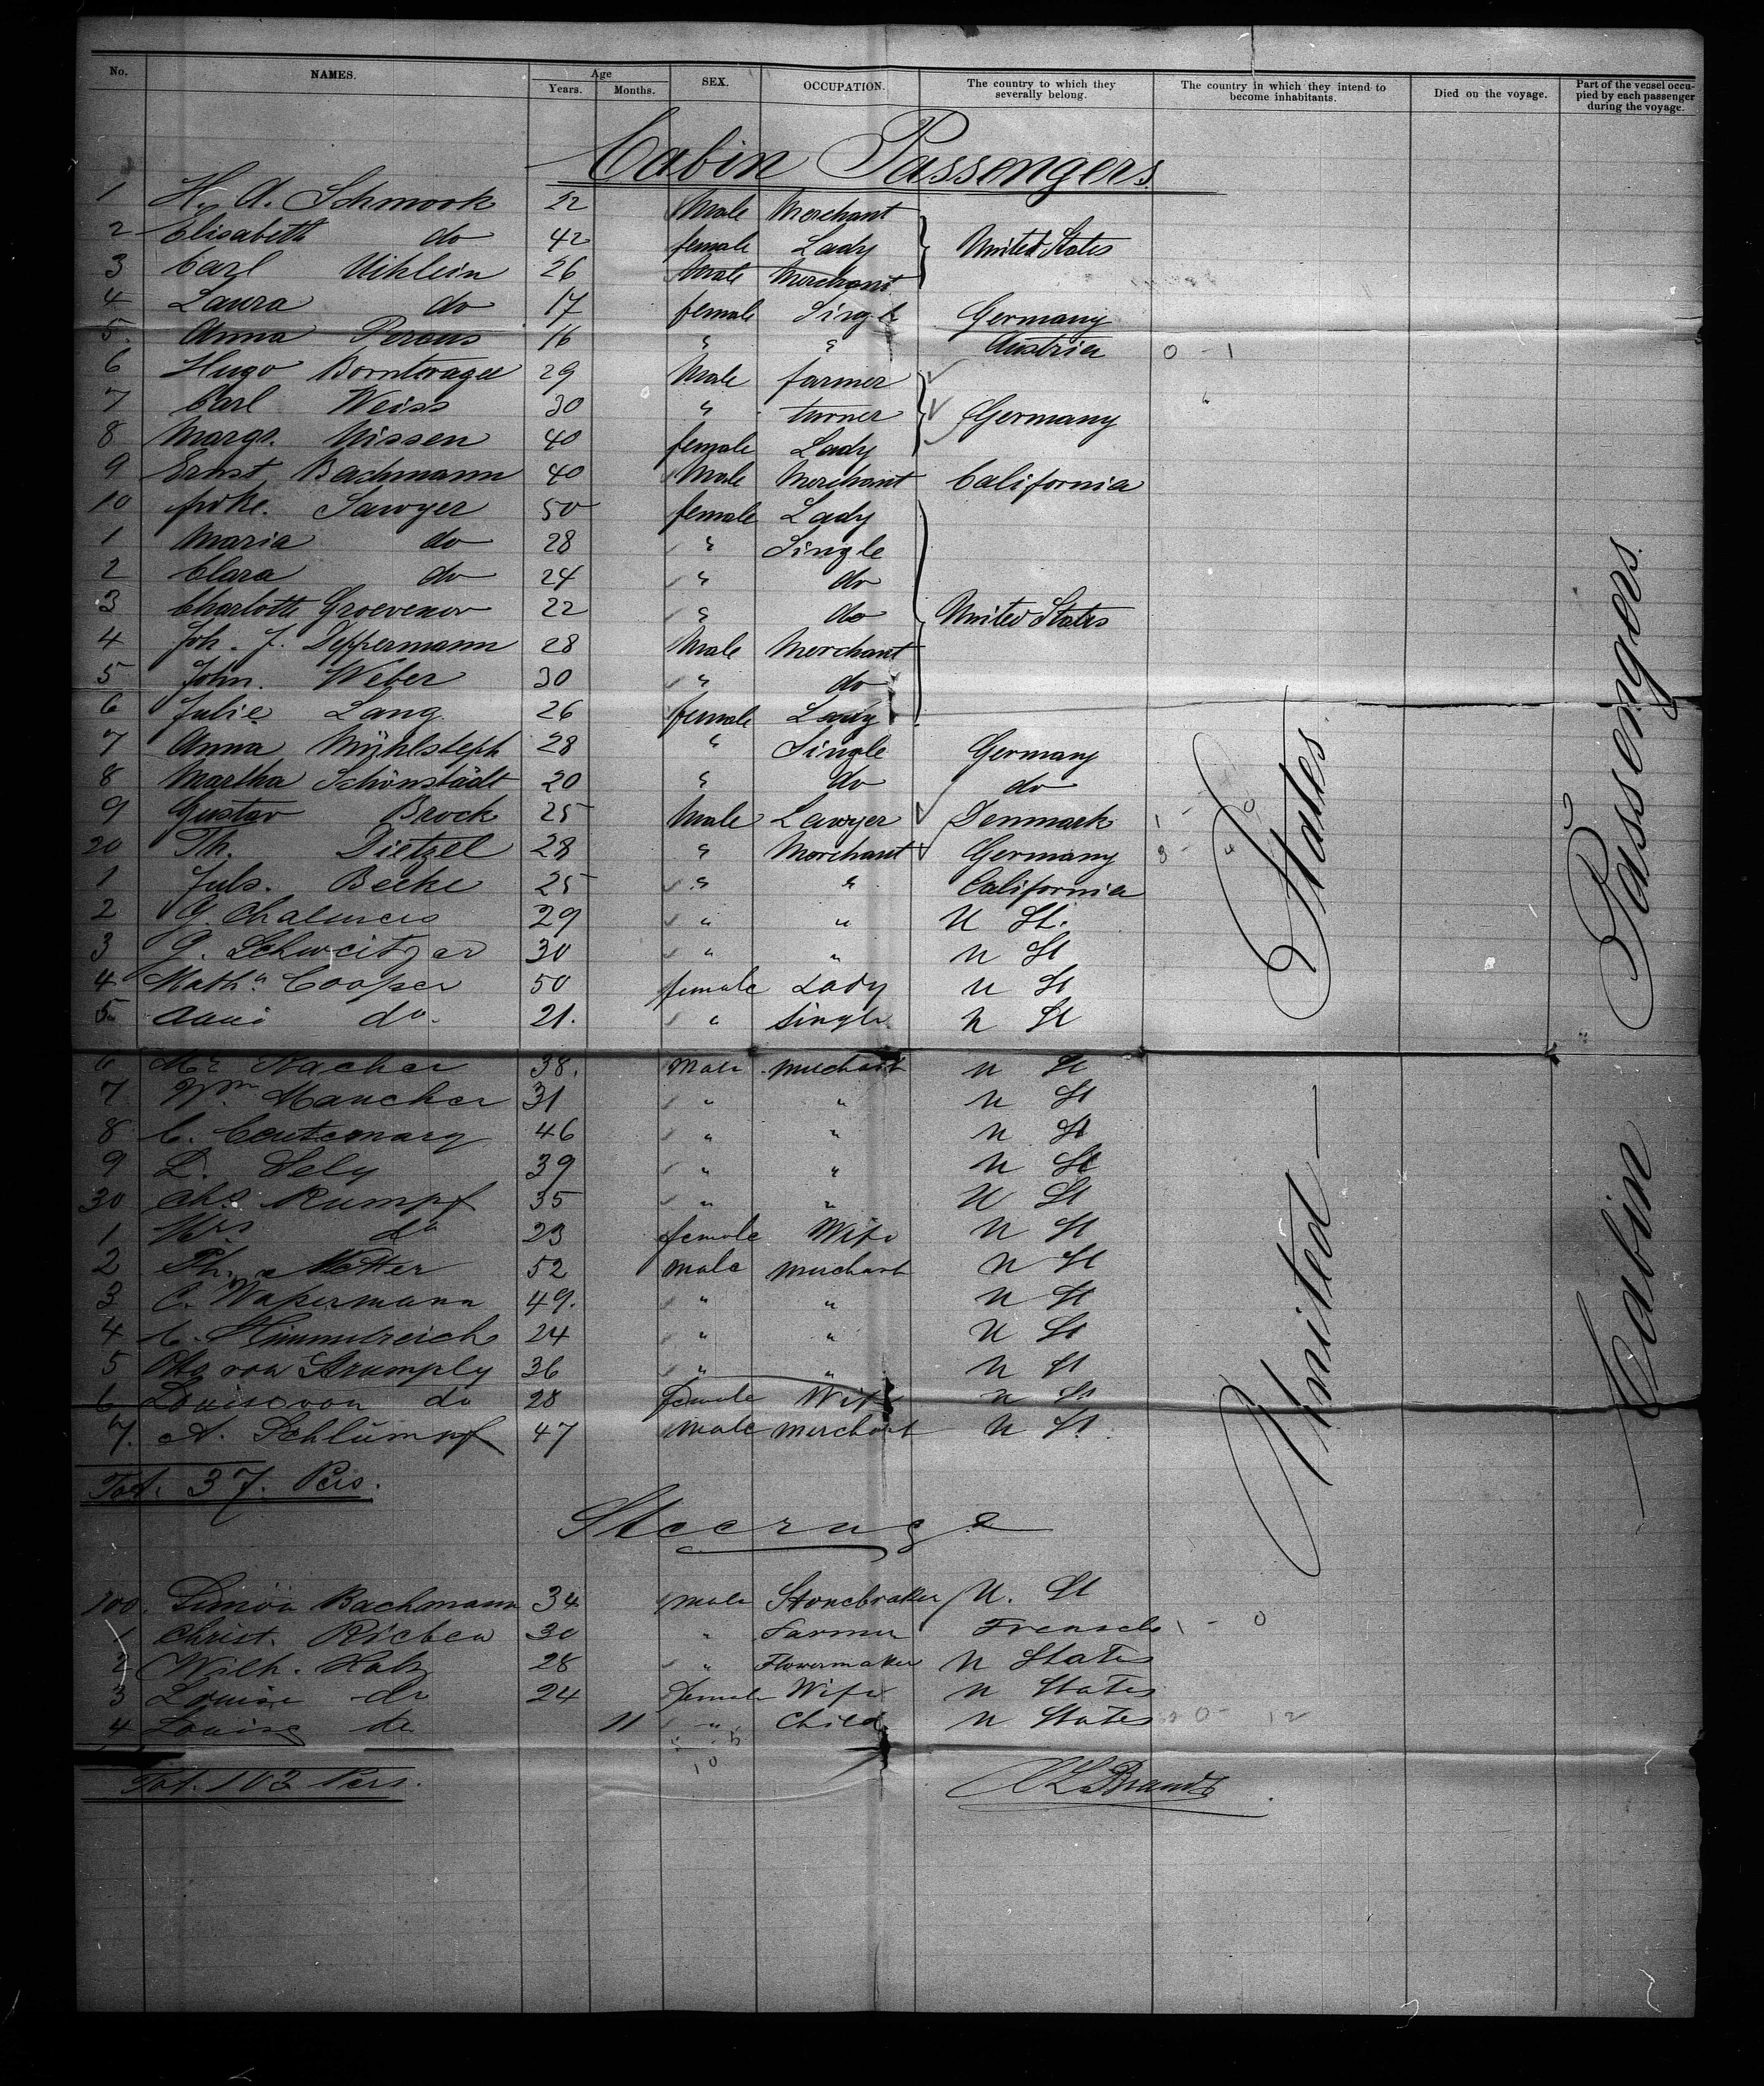 No. NAMES. Age Years. Months. SEX. OCCUPATION. The country to which they severally belong. The country in which they intend to become inhabitants. Died on the voyage. Part of the vessel occupied by each passenger during the voyage.
Cabin Passengers
1 H. A. Schmook 22 Male Merchant
2 Elisabeth do 42 female Lady United States
3 Carl Uihlein 26 Male Merchant
4 Laura do 17 female Single Germany
5. Anna Perous 16 " " Austria 0 - 1
6 Hugo Borntrager 29 Male farmer
7 Carl Weiss 30 " turner Germany
8 Margr. Nissen 40 female Lady
9 Ernst Bachmann 40 Male Merchant California
10 Sawyer 50 female Lady
1 Maria do 28 " Single
2 Clara do 24 " do
3 Charlotte Groevenor 22 " do United States
4 Joh. J. Deppermann 28 Male Merchant
5 John. Weber 30 " do
6 Julie Lang 26 female Lady
7 Anna Mühlsteph 28 " Single Germany
8 Martha Schönstädt 20 " do do
9 Gustav Brock 25 Male Lawyer Denmark
20 Th. Dietzel 28 " Merchant Germany
1 Juls. Becke 25 " " California
2 G. Chalmers 29 " " U St.
3 G. Schweitzer 30 " " U St
4 Math. Cooper 50 female Lady U St
5 do. 21. " Single U St
6 Mr 38. Male merchant U St
7 Wm. Mancher 31 " " U St
8 C. 46 " " U St
9 L. Sely 39 " " U St
30 Chs Rumpf 35 " " U St
1 Mrs do 23 female Wife U St
2 Ph. Netter 52 male merchant U St
3 C. Wapermann 49. " " U St
4 C. Himmelreich 24 " " U St
5 Otto von Strumply 36 " " U St
6 Louise von do 28 female Wife U St
7. A. Schlumpf 47 male merchant U St.
Tot. 37. Pers.
Steerage
100. Simon Bachmann 34 male Stonebraker U. St
1 Christ. Richen 30 " Farmer French 1 - 0
2 Wilh. Holz 28 " Flowermaker U States
3 Louise do 24 female Wife U States
4 Louise do 11 " Child U States 0 - 12
10
Tot. 103 Pers.
Brandt
United States
Cabin Passengers